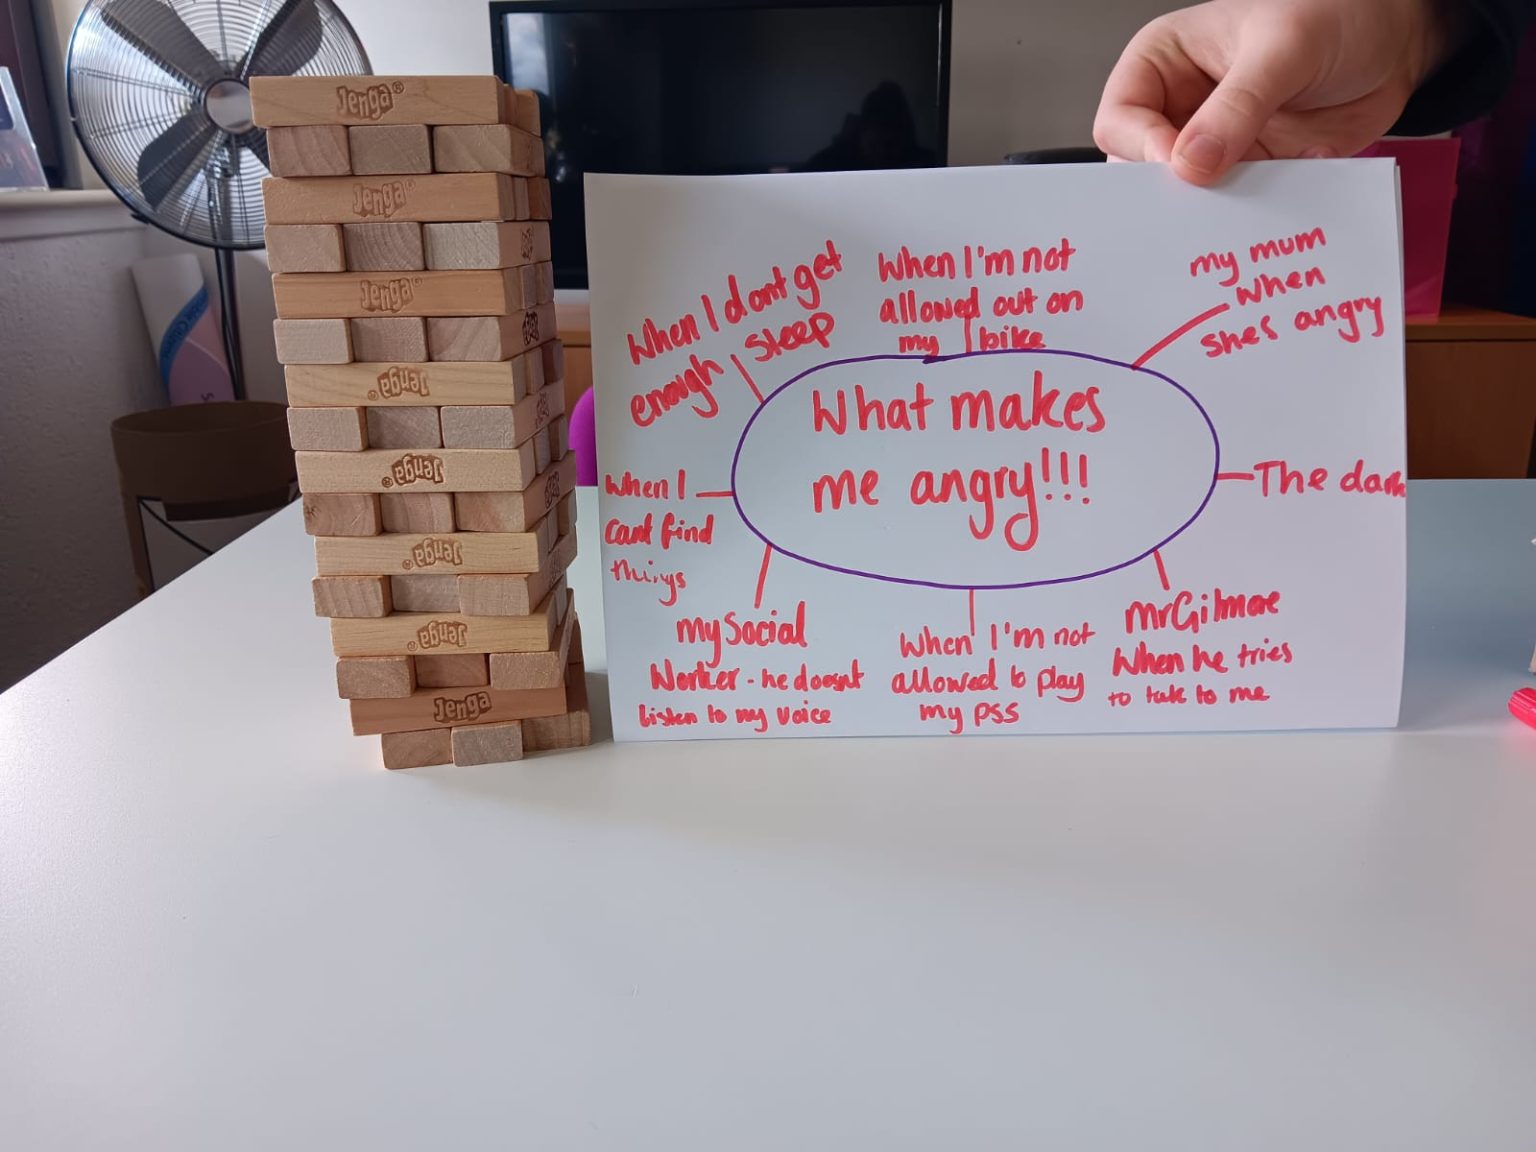 Jenga®
Jenga®
Jenga®
Jenga®
Jenga®
Jenga®
Jenga®
Jenga
What makes
me angry!!!
When I dont get
enough sleep
When I'm not
allowed out on
my bike
my mum
when
shes angry
The dark
mr Gilmore
When he tries
to talk to me
When I'm not
allowed to play
my PSS
my Social
Worker - he doesnt
listen to my voice
when I
cant find
things